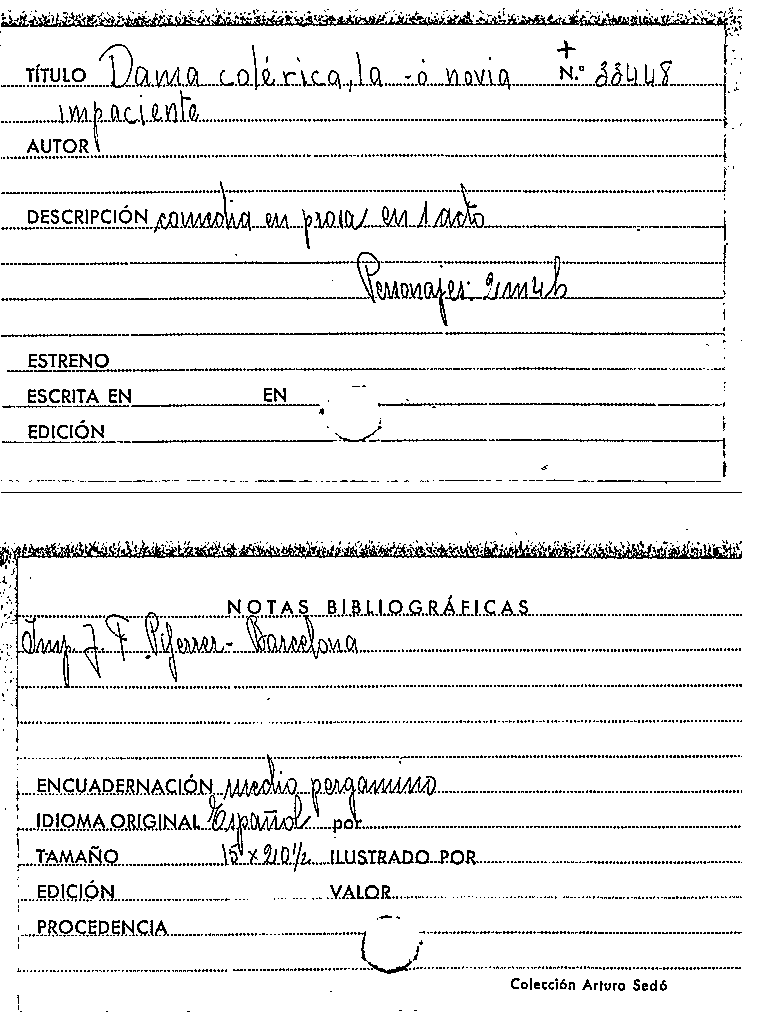 TÍTULO Dama colérica, la - ó novia + N.º 33448
impaciente
AUTOR
DESCRIPCIÓN comedia en prosa en 1 acto
Personajes: 2m4h
ESTRENO
ESCRITA EN EN
EDICIÓN
NOTAS BIBLIOGRÁFICAS
Imp. J. F. Piferrer - Barcelona
ENCUADERNACIÓN medio pergamino
IDIOMA ORIGINAL Español por
TAMAÑO 15 x 20 1/2 ILUSTRADO POR
EDICIÓN VALOR
PROCEDENCIA
Colección Arturo Sedó